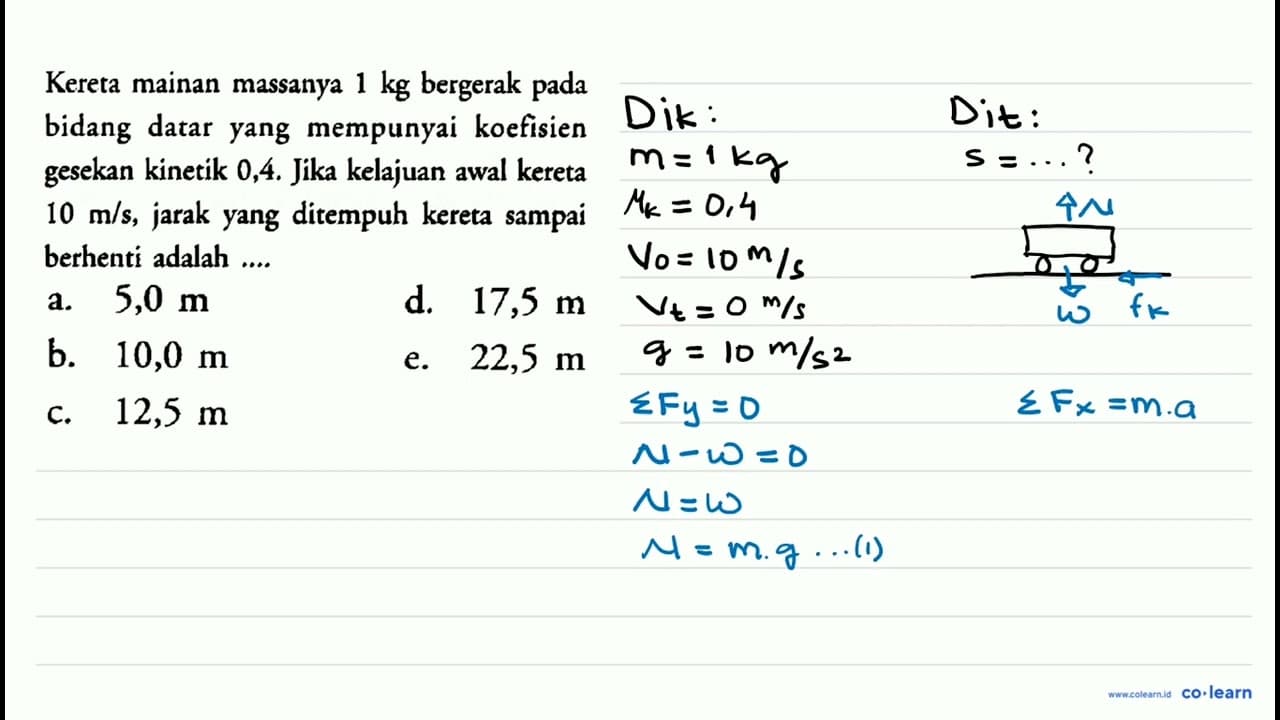 Kereta mainan massanya 1 kg bergerak pada
bidang datar yang mempunyai koefisien
gesekan kinetik 0,4. Jika kelajuan awal kereta
10 m/s, jarak yang ditempuh kereta sampai
berhenti adalah ....
a. 5,0 m
b. 10,0 m
c. 12,5 m
d. 17,5 m
e. 22,5 m
Dik:
m = 1 kg
μk = 0,4
Vo = 10 m/s
Vt = 0 m/s
g = 10 m/s2
Dit:
s = ...?
N
w
fk
ΣFy = 0
N - w = 0
N = w
N = m.g ...(1)
ΣFx = m.a
www.colearn.id co·learn